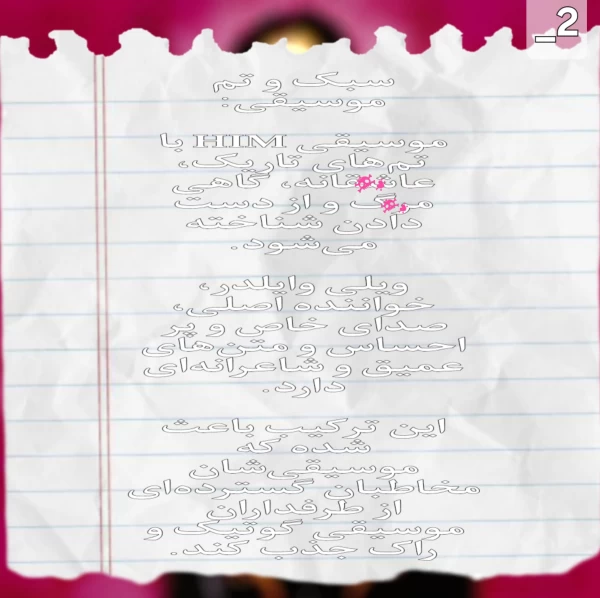 _2
سبک و تم
موسیقی:
موسیقی HIM با
تم‌های تاریک،
عاشقانه، گاهی
مرگ و از دست
دادن شناخته
می‌شود.
ویلی وایلدر،
خواننده اصلی،
صدای خاص و پر
احساس و متن‌های
عمیق و شاعرانه‌ای
دارد.
این ترکیب باعث
شده که
موسیقی‌شان
مخاطبان گسترده‌ای
از طرفداران
موسیقی گوتیک و
راک جذب کند.